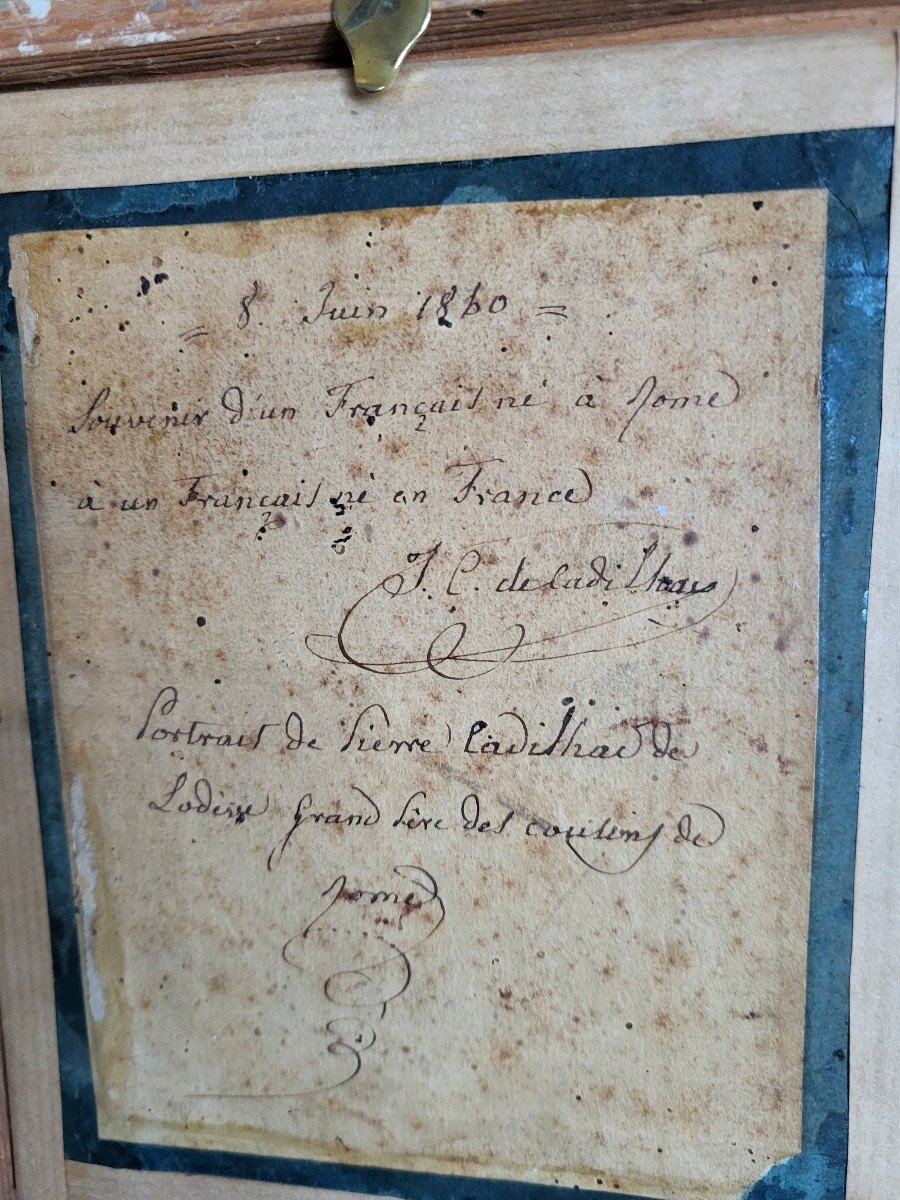 = 8. Juin 1860 =
Souvenir d'un Français né à Rome
à un Français né en France
J. C. de Cadilhac
Portrait de Pierre Cadilhac de
Lodève Grand Père des cousins de
Rome